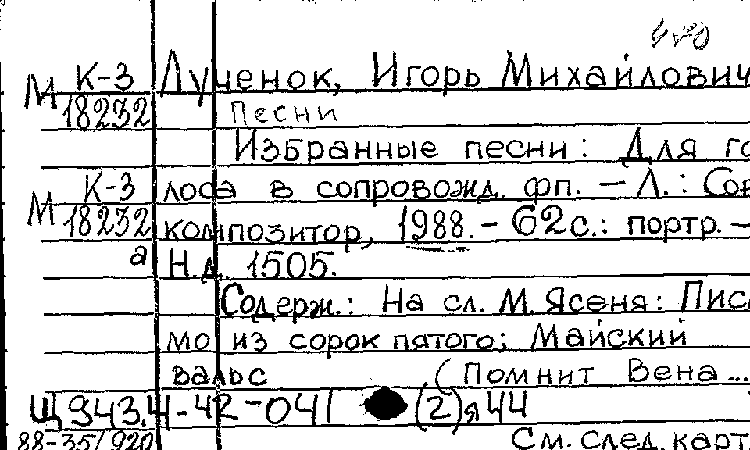 М К-3 Лученок, Игорь Михайлович
18232 Песни
Избранные песни: Для го
К-3 лоса в сопровожд. фп. – Л.: Сов
М 18232 композитор, 1988. – 62 с.: портр. –
а Н.д. 1505.
Содерж.: На сл. М. Ясеня: Пись
мо из сорок пятого; Майский
вальс (Помнит Вена...
Щ943.4-42-041 (2)я44
88-35/920 См. след. карт